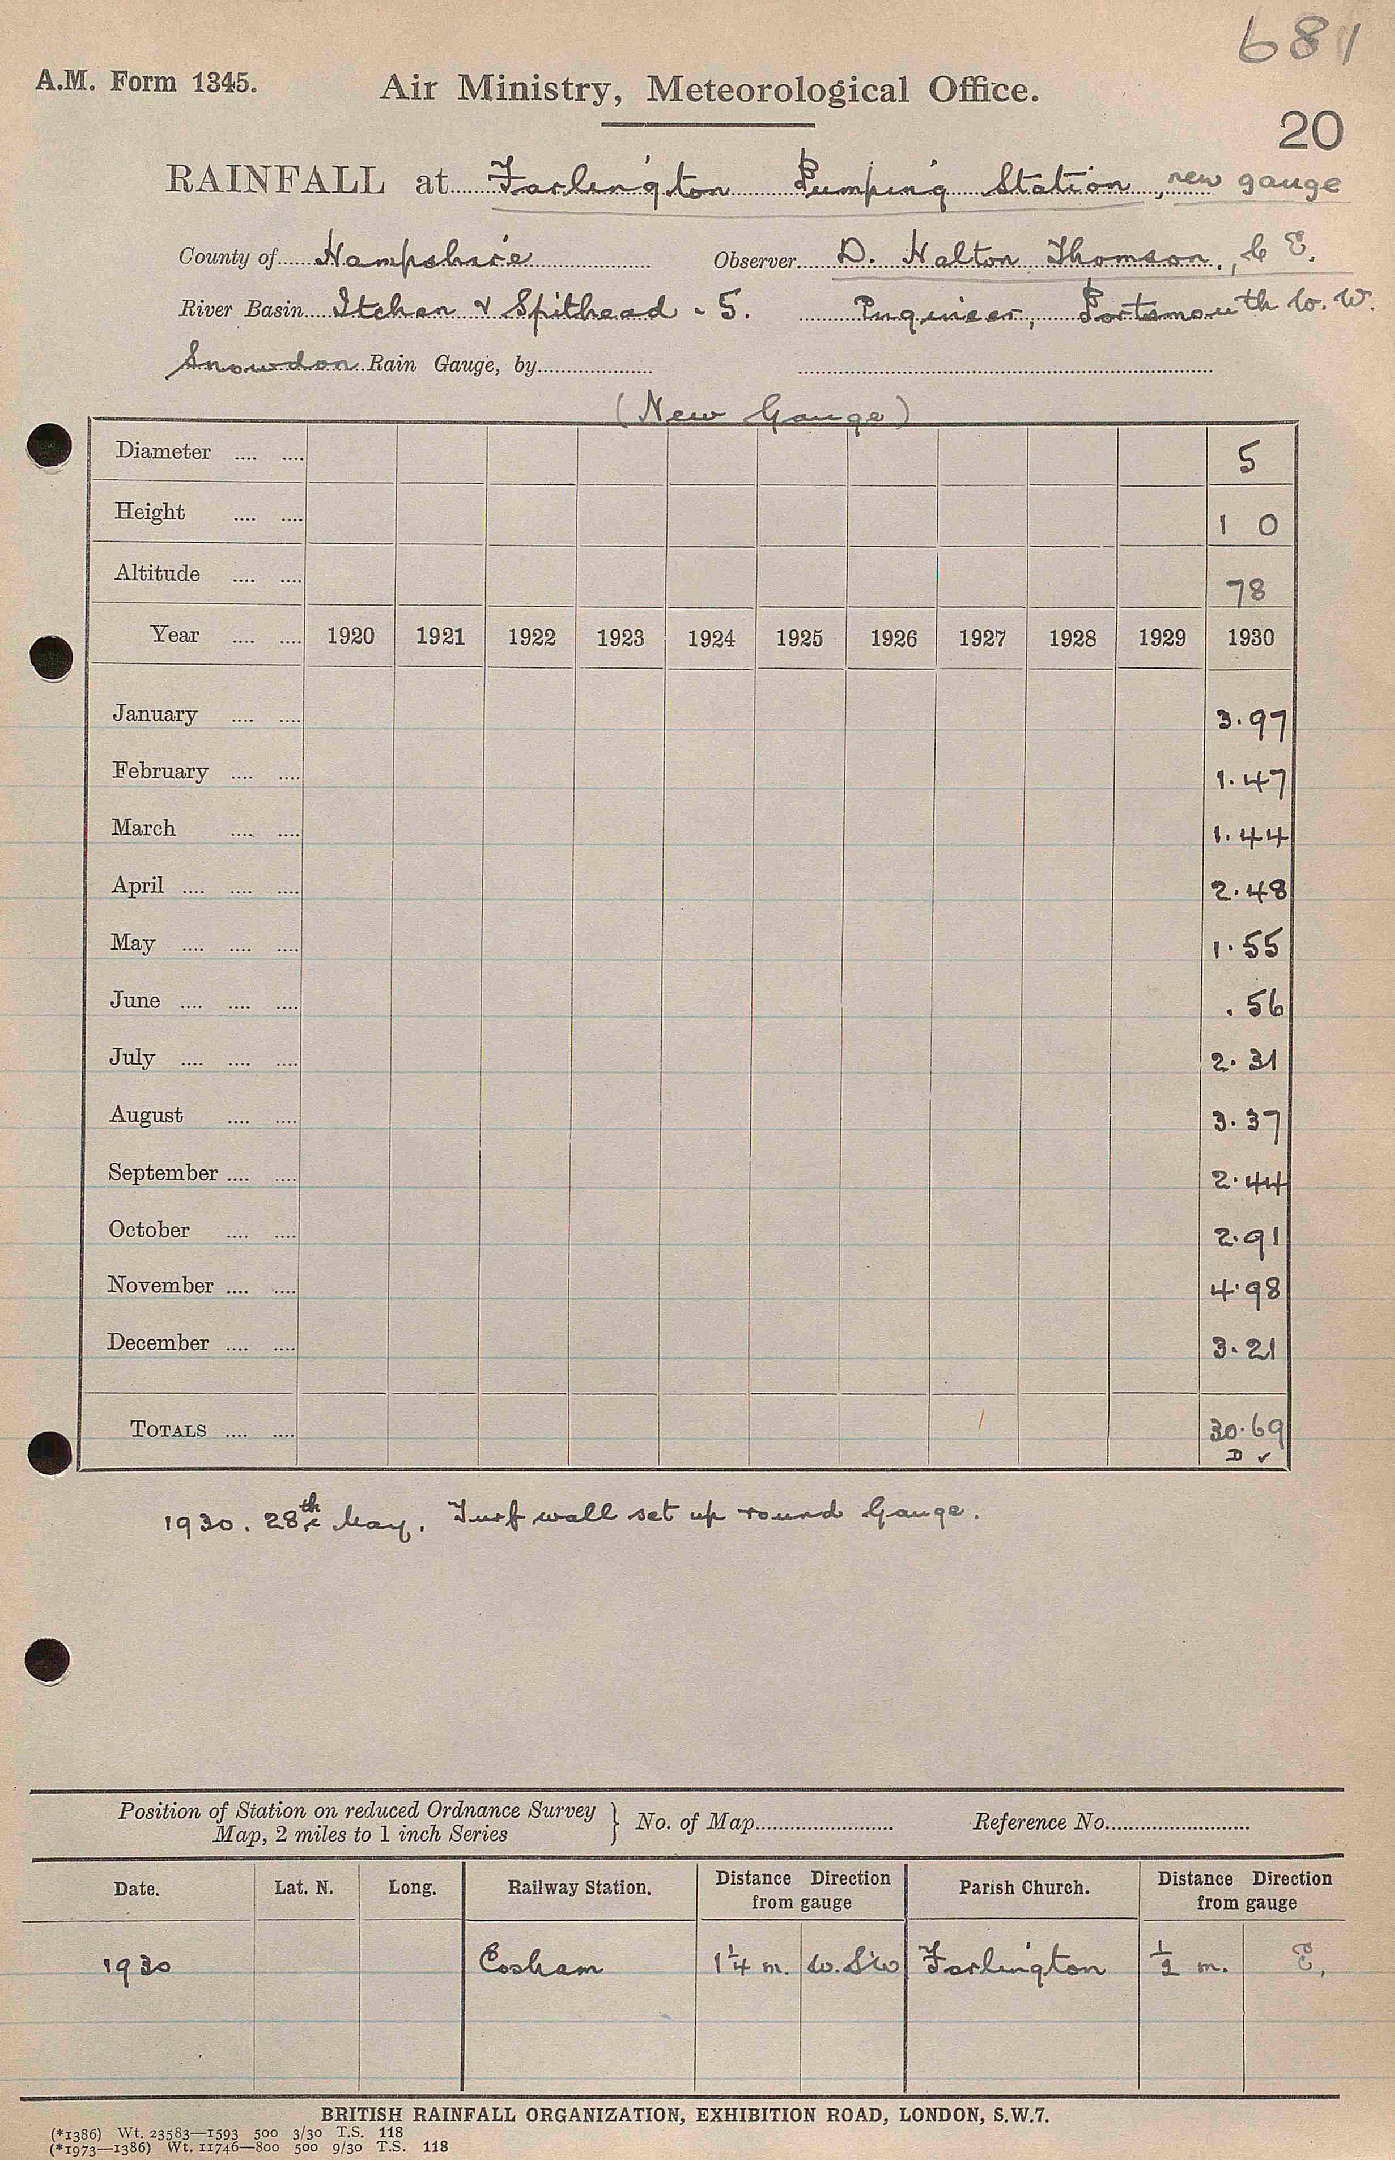 681
A.M. Form 1345.
Air Ministry, Meteorological Office.
20
RAINFALL at Farlington Pumping Station, new gauge
County of Hampshire Observer D. Halton Thomson., C E.
River Basin Itchen & Spithead - 5. Engineer, Portsmouth Co. W.
Snowdon Rain Gauge, by
(New Gauge)
Diameter .... .... 5
Height .... .... 1 0
Altitude .... .... 78
Year .... .... 1920 1921 1922 1923 1924 1925 1926 1927 1928 1929 1930
January .... .... 3.97
February .... .... 1.47
March .... .... 1.44
April .... .... .... 2.48
May .... .... .... 1.55
June .... .... .... .56
July .... .... .... 2.31
August .... .... 3.37
September .... .... 2.44
October .... .... 2.91
November .... .... 4.98
December .... .... 3.21
TOTALS .... .... 30.69
D ✓
1930. 28th May. Turf wall set up round Gauge.
Position of Station on reduced Ordnance Survey
Map, 2 miles to 1 inch Series } No. of Map Reference No.
Date. Lat. N. Long. Railway Station. Distance Direction from gauge Parish Church. Distance Direction from gauge
1930 Cosham 1¼ m. W.SW Farlington ½ m. E.
BRITISH RAINFALL ORGANIZATION, EXHIBITION ROAD, LONDON, S.W.7.
(*1386) Wt. 23583—1593 500 3/30 T.S. 118
(*1973—1386) Wt. 11746—800 500 9/30 T.S. 118